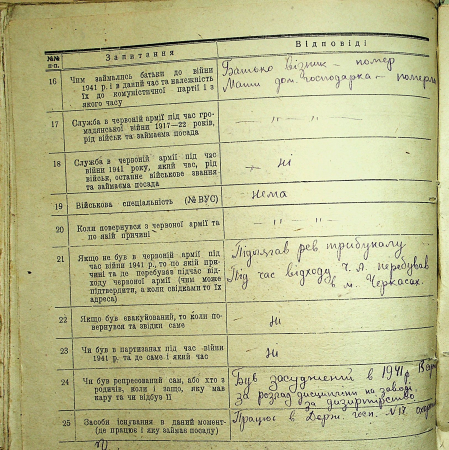 №№ п-п. Запитання Відповіді
16 Чим займались батьки до війни
1941 р. і в даний час та належність
їх до комуністичної партії і з
якого часу
Батько візник — помер
Мати дом. господарка — померла
17 Служба в червоній армії під час гро-
мадянської війни 1917—22 років,
рід військ та займаєма посада
— „ — „ —
18 Служба в червоній армії під час
війни 1941 року, який час, рід
військ, останнє військове звання
та займаєма посада
— ні
19 Військова спеціальність (№ ВУС)
— нема
20 Коли повернувся з червоної армії та
по якій причині
— „ — „
21 Якщо не був в червоній армії під
час війни 1941 р., то по якій при-
чині та де перебував підчас від-
ходу червоної армії (чим може
підтвердити, а коли свідками то їх
адреса)
Підлягав рев трибуналу
Під час відходу Ч. А. перебував
в м. Черкасах.
22 Якщо був евакуйований, то коли по-
вернувся та звідки саме
Ні
23 Чи був в партизанах під час війни
1941 р. та де саме і який час
Ні
24 Чи був репресований сам, або хто з
родичів, коли і защо, яку мав
кару та чи відбув її
Був засуджений в 1941 р.
за розлад дисципліни на заводі
за дизиртірство
25 Засоби існування в даний момент-
(де працює і яку займає посаду)
Працює в Держ. госп. №